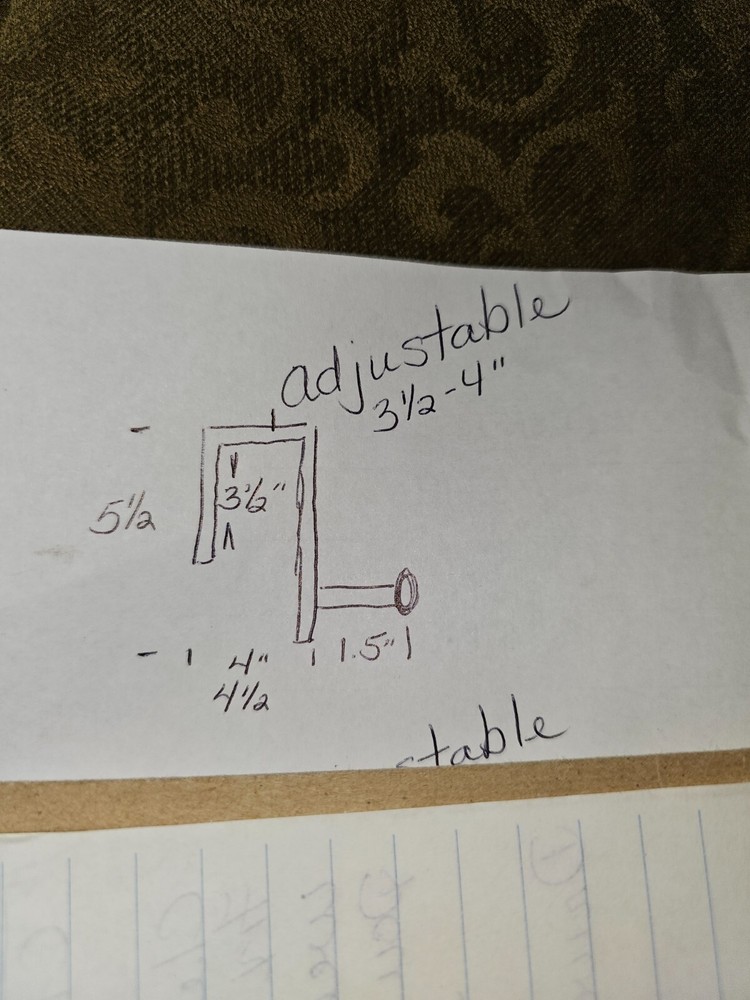 adjustable
3 1/2 - 4"
3 1/2"
5 1/2
4"
1.5"
4 1/2
table